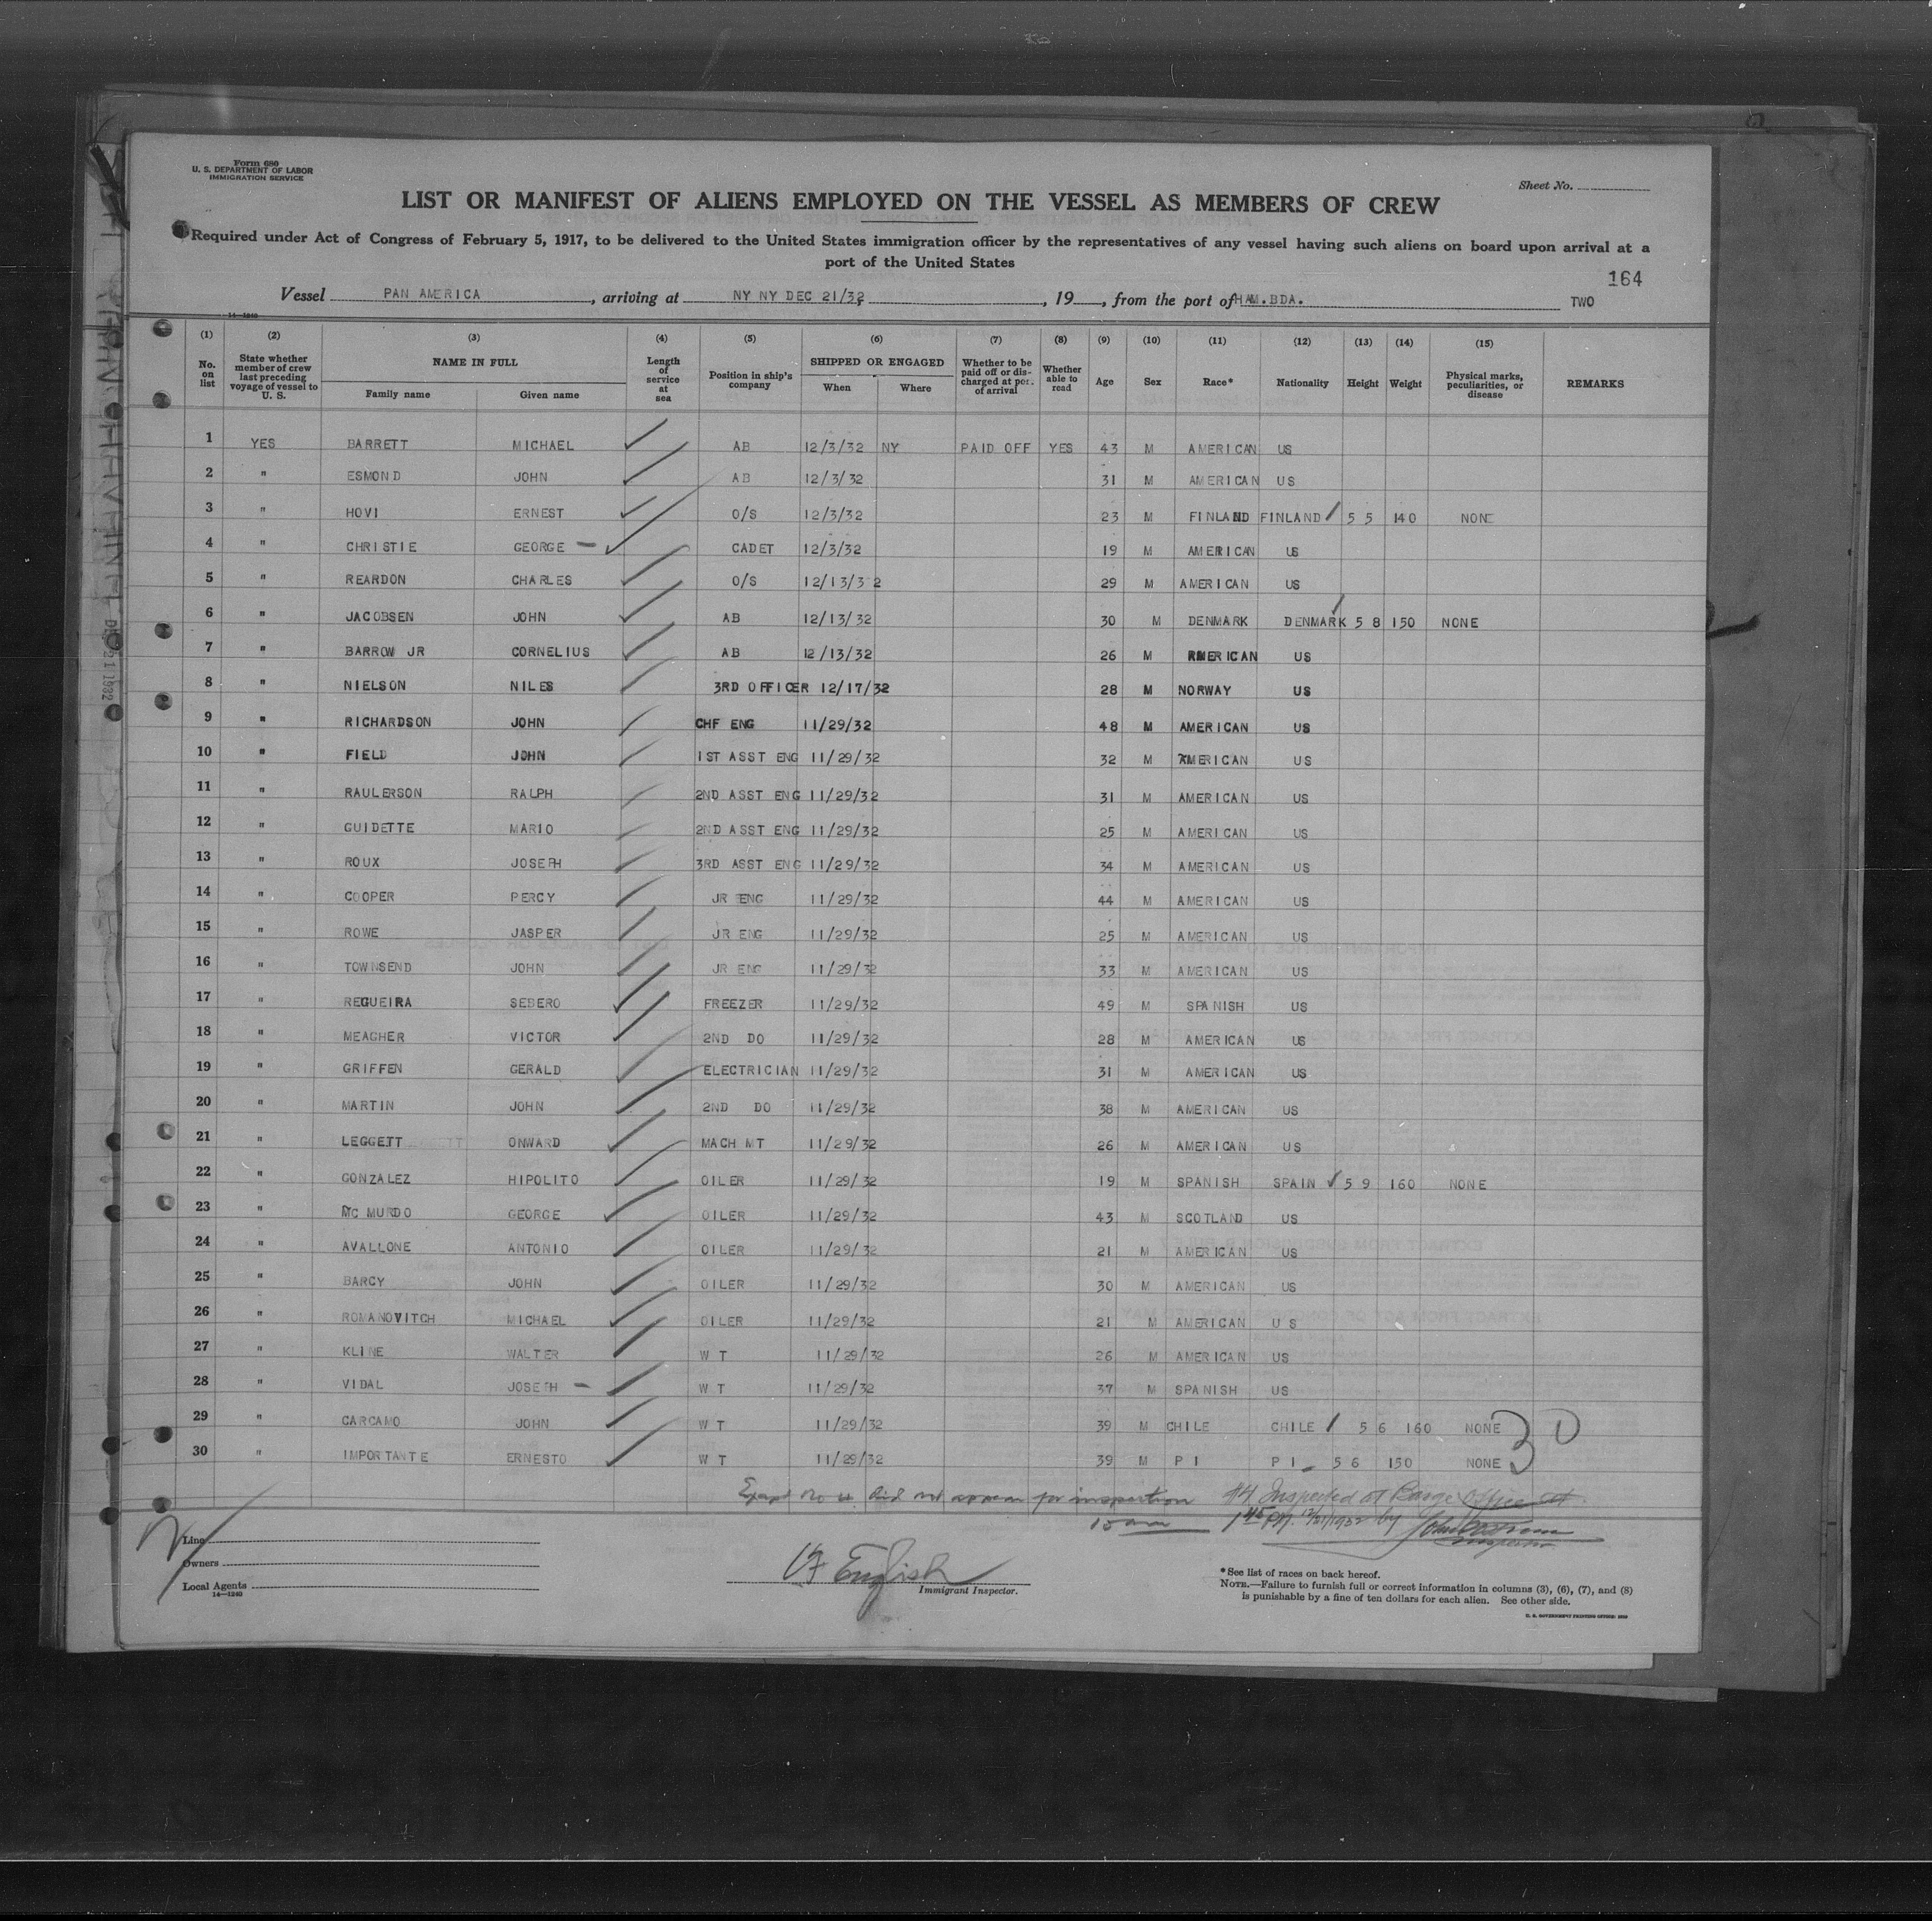 Form 680
U. S. DEPARTMENT OF LABOR
IMMIGRATION SERVICE
Sheet No.
LIST OR MANIFEST OF ALIENS EMPLOYED ON THE VESSEL AS MEMBERS OF CREW
Required under Act of Congress of February 5, 1917, to be delivered to the United States immigration officer by the representatives of any vessel having such aliens on board upon arrival at a
port of the United States
164
Vessel PAN AMERICA, arriving at NY NY DEC 21/32, 19 , from the port of HAM.BDA. TWO
14—1240
(1) (2) (3) (4) (5) (6) (7) (8) (9) (10) (11) (12) (13) (14) (15)
No. on list State whether member of crew last preceding voyage of vessel to U. S. NAME IN FULL Family name Given name Length of service at sea Position in ship's company SHIPPED OR ENGAGED When Where Whether to be paid off or discharged at port of arrival Whether able to read Age Sex Race* Nationality Height Weight Physical marks, peculiarities, or disease REMARKS
1 YES BARRETT MICHAEL AB 12/3/32 NY PAID OFF YES 43 M AMERICAN US
2 " ESMOND JOHN AB 12/3/32 31 M AMERICAN US
3 " HOVI ERNEST O/S 12/3/32 23 M FINLAND FINLAND 5 5 140 NONE
4 " CHRISTIE GEORGE — CADET 12/3/32 19 M AMERICAN US
5 " REARDON CHARLES O/S 12/13/32 29 M AMERICAN US
6 " JACOBSEN JOHN AB 12/13/32 30 M DENMARK DENMARK 5 8 150 NONE
7 " BARROW JR CORNELIUS AB 12/13/32 26 M AMERICAN US
8 " NIELSON NILES 3RD OFFICER 12/17/32 28 M NORWAY US
9 " RICHARDSON JOHN CHF ENG 11/29/32 48 M AMERICAN US
10 " FIELD JOHN 1ST ASST ENG 11/29/32 32 M AMERICAN US
11 " RAULERSON RALPH 2ND ASST ENG 11/29/32 31 M AMERICAN US
12 " GUIDETTE MARIO 2ND ASST ENG 11/29/32 25 M AMERICAN US
13 " ROUX JOSEPH 3RD ASST ENG 11/29/32 34 M AMERICAN US
14 " COOPER PERCY JR ENG 11/29/32 44 M AMERICAN US
15 " ROWE JASPER JR ENG 11/29/32 25 M AMERICAN US
16 " TOWNSEND JOHN JR ENG 11/29/32 33 M AMERICAN US
17 " REGUEIRA SEBERO FREEZER 11/29/32 49 M SPANISH US
18 " MEAGHER VICTOR 2ND DO 11/29/32 28 M AMERICAN US
19 " GRIFFEN GERALD ELECTRICIAN 11/29/32 31 M AMERICAN US
20 " MARTIN JOHN 2ND DO 11/29/32 38 M AMERICAN US
21 " LEGGETT ONWARD MACH MT 11/29/32 26 M AMERICAN US
22 " GONZALEZ HIPOLITO OILER 11/29/32 19 M SPANISH SPAIN 5 9 160 NONE
23 " MC MURDO GEORGE OILER 11/29/32 43 M SCOTLAND US
24 " AVALLONE ANTONIO OILER 11/29/32 21 M AMERICAN US
25 " BARCY JOHN OILER 11/29/32 30 M AMERICAN US
26 " ROMANOVITCH MICHAEL OILER 11/29/32 21 M AMERICAN US
27 " KLINE WALTER W T 11/29/32 26 M AMERICAN US
28 " VIDAL JOSEPH — W T 11/29/32 37 M SPANISH US
29 " CARCAMO JOHN W T 11/29/32 39 M CHILE CHILE 5 6 160 NONE
30 " IMPORTANTE ERNESTO W T 11/29/32 39 M P I P I 5 6 150 NONE
30
Except No 4 did not appear for inspection #4 Inspected at Barge Office at
1 45 PM. 12/21/1932 by
Line
Owners
Local Agents
14—1240
English
Immigrant Inspector.
*See list of races on back hereof.
NOTE.—Failure to furnish full or correct information in columns (3), (6), (7), and (8)
is punishable by a fine of ten dollars for each alien. See other side.